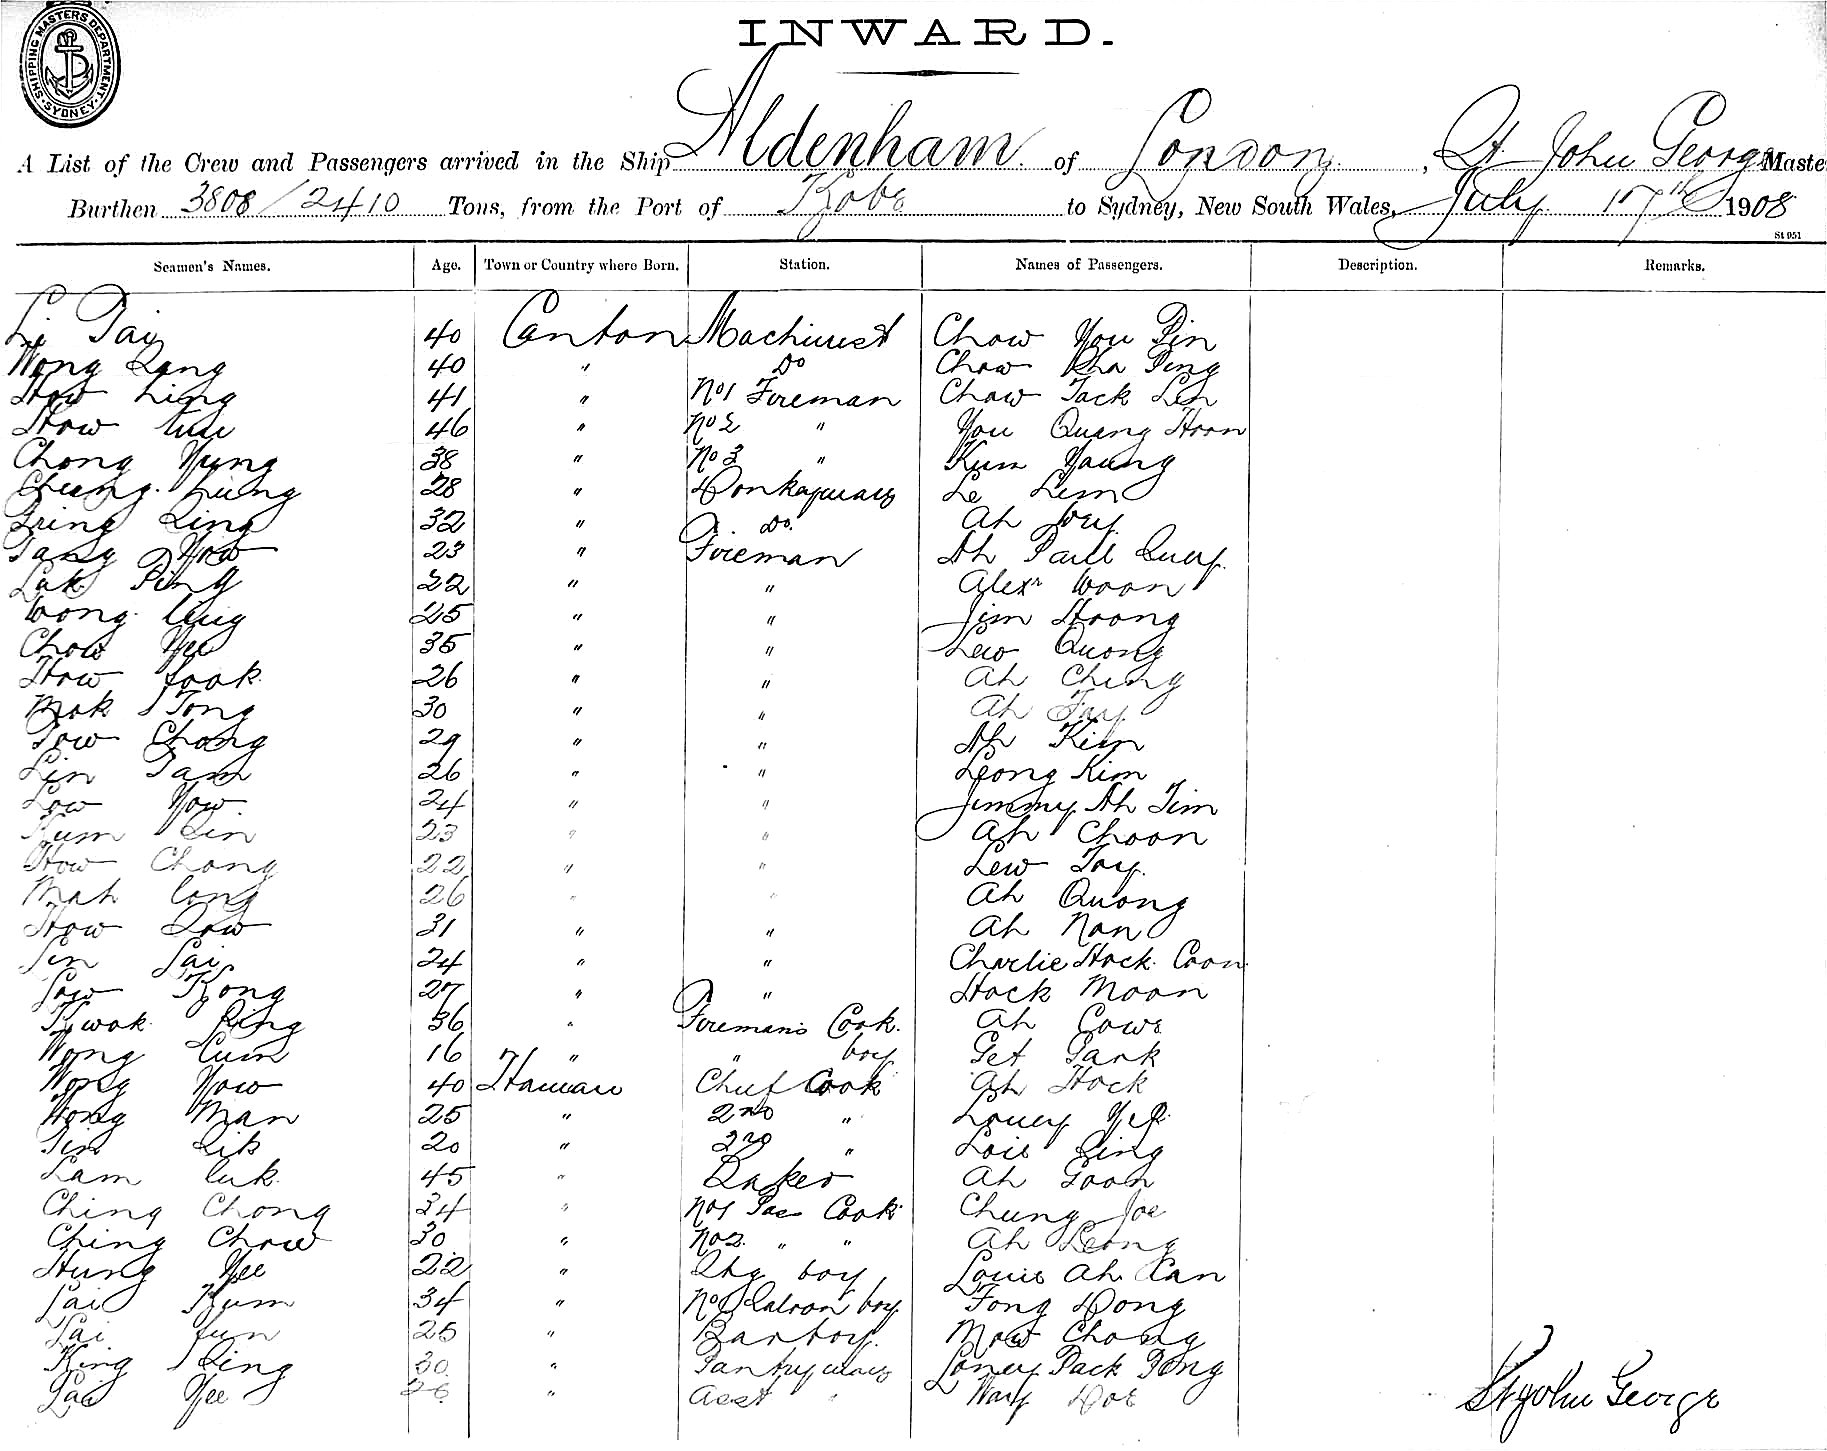 SHIPPING MASTERS DEPARTMENT. SYDNEY.
INWARD.
A List of the Crew and Passengers arrived in the Ship Aldenham of London, St John George Maste
Burthen 3808/2410 Tons, from the Port of Kobe to Sydney, New South Wales, July 17th 1908
St 951
Seamen's Names. Age. Town or Country where Born. Station. Names of Passengers. Description. Remarks.
Li Tai 40 Canton Machinist Chow You Pin
Wong Sang 40 " Do Chow Kha Ping
How Ling 41 " No1 Fireman Chow Tack Lin
How 46 " No2 " You Quang Hoon
Chong Yung 38 " No 3 " Kum Young
Cheung Lung 28 " Donkeyman Le Lem
Ling 32 " Do. Ah Way
Tang Yow 23 " Fireman Ah Paul Quay
Luk Ping 22 " " Alexr Woon
Wong Ling 25 " " Jim Hoong
Chow Yee 35 " " Lew Quong
How fook 26 " " Ah Ching
Mok Tong 30 " " Ah Fay
Chong 29 " " Ah Kim
Lin Tam 26 " " Leong Kim
Low Yow 24 " " Jimmy Ah Tim
Kum Lin 23 " " Ah Choon
How Chong 22 " " Lew Toy.
Mah Cong 26 " " Ah Quong
How Sow 31 " " Ah Non
Sen Sai 24 " " Charlie Hock Coon
Low Kong 27 " " Hock Moon
Kwok Ping 36 " Fireman's Cook. Ah Cowe
Wong Lum 16 " " boy Get Park
Wong Yow 40 Hainan Chief Cook Ah Hock
Hong Man 25 " 2nd " Louey Yep
Sik 20 " 3rd " Loie Ping
Lam Luk 45 " Baker Ah Goon
Ching Chong 34 " No1 Pas Cook Chung Joe
Ching Chow 30 " No2. " " Ah Leong
Hung Yee 22 " boy Louie Ah Kan
Lai Kum 34 " No1 Saloon boy Fong Dong
Lai fun 25 " Barboy. Mow Chong
King Sing 30 " Pantryman Louey Pack Pong
Lai Yee 26 " Asst " Way Doe
St John George